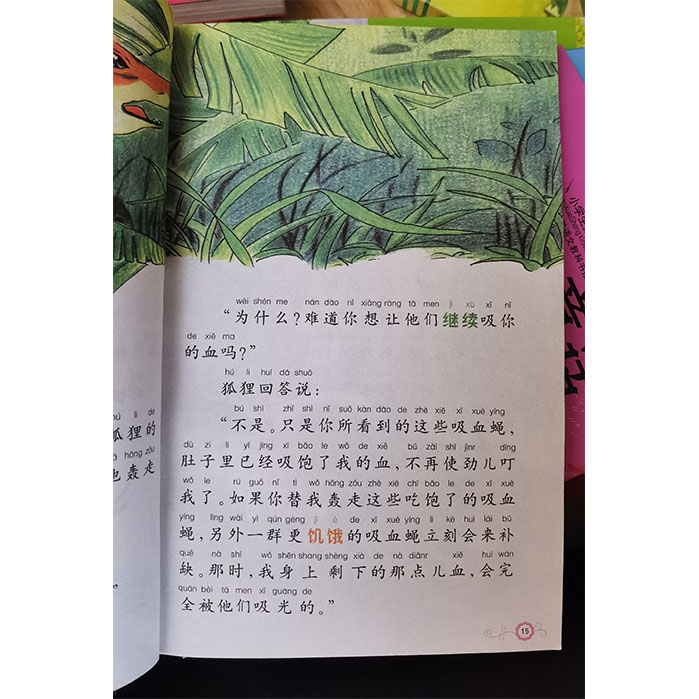 wèi shén me nán dào nǐ xiǎng ràng tā men jì xù xī nǐ
“为什么?难道你想让他们继续吸你
de xiě ma
的血吗?”
hú li huí dá shuō
狐狸回答说:
bú shì zhǐ shì nǐ suǒ kàn dào de zhè xiē xī xuè yíng
“不是。只是你所看到的这些吸血蝇,
dù zi lǐ yǐ jīng xī bǎo le wǒ de xiě bú zài shǐ jìnr dīng
肚子里已经吸饱了我的血,不再使劲儿叮
wǒ le rú guǒ nǐ tì wǒ hōng zǒu zhè xiē chī bǎo le de xī xuè
我了。如果你替我轰走这些吃饱了的吸血
yíng lìng wài yì qún gèng jī è de xī xuè yíng lì kè huì lái bǔ
蝇,另外一群更饥饿的吸血蝇立刻会来补
quē nà shí wǒ shēn shang shèng xià de nà diǎnr xiě huì wán
缺。那时,我身上剩下的那点儿血,会完
quán bèi tā men xī guāng de
全被他们吸光的。”
15
hú li de
狐狸的
hōng zǒu
也轰走
”
小学生